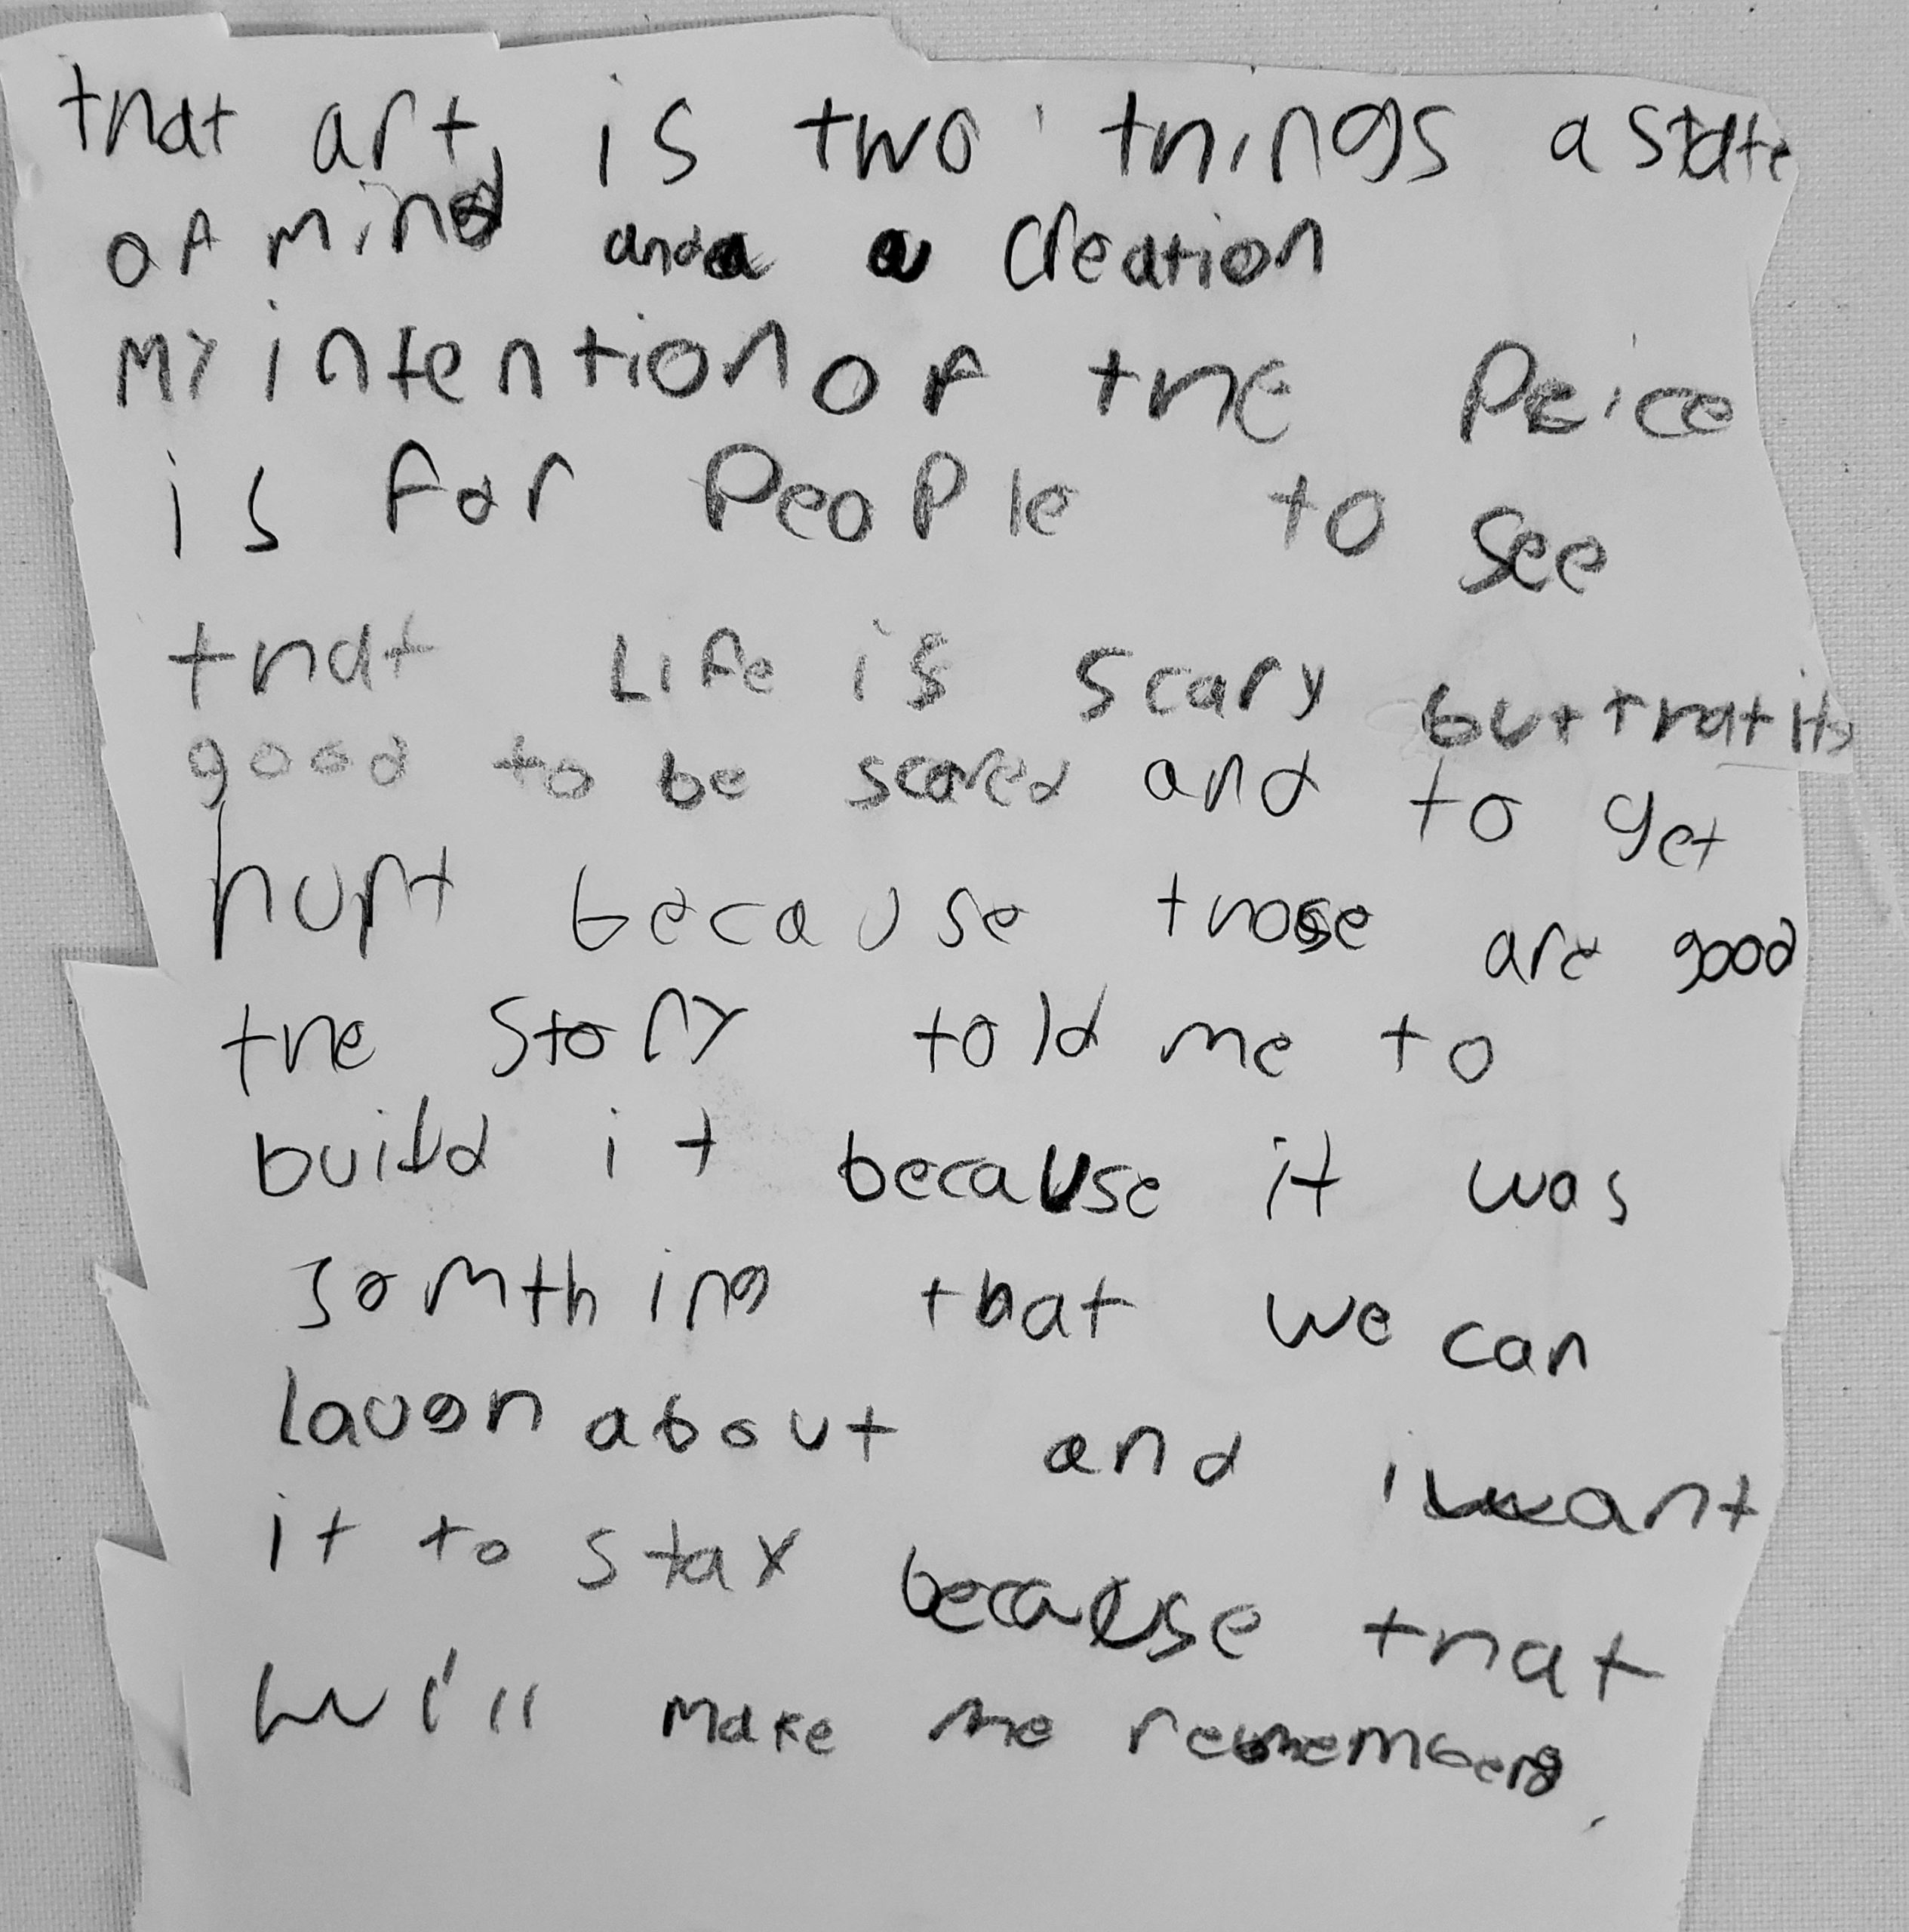 that art, is two things a state
of mind and a creation
my intention of the Peice
is for People to see
that Life is scary but that its
good to be scared and to get
hurt because those are good
the story told me to
build it because it was
somthing that we can
laugh about and i want
it to stay because that
wi'll make me remember.